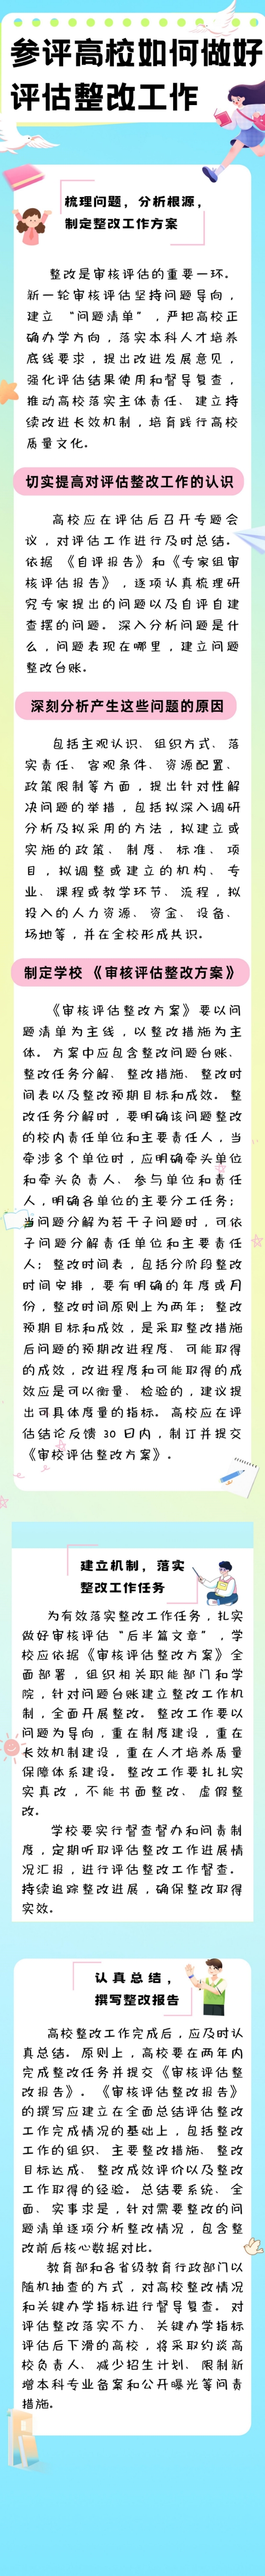 参评高校如何做好
评估整改工作
梳理问题，分析根源，
制定整改工作方案
整改是审核评估的重要一环。
新一轮审核评估坚持问题导向，
建立 “问题清单”，严把高校正
确办学方向，落实本科人才培养
底线要求，提出改进发展意见，
强化评估结果使用和督导复查，
推动高校落实主体责任、建立持
续改进长效机制，培育践行高校
质量文化。
切实提高对评估整改工作的认识
高校应在评估后召开专题会
议，对评估工作进行及时总结。
依据 《自评报告》和《专家组审
核评估报告》，逐项认真梳理研
究专家提出的问题以及自评自建
查摆的问题。深入分析问题是什
么，问题表现在哪里，建立问题
整改台账。
深刻分析产生这些问题的原因
包括主观认识、组织方式、落
实责任、客观条件、资源配置、
政策限制等方面，提出针对性解
决问题的举措，包括拟深入调研
分析及拟采用的方法，拟建立或
实施的政策、制度、标准、项
目，拟调整或建立的机构、专
业、课程或教学环节、流程，拟
投入的人力资源、资金、设备、
场地等，并在全校形成共识。
制定学校 《审核评估整改方案》
《审核评估整改方案》要以问
题清单为主线，以整改措施为主
体。方案中应包含整改问题台账、
整改任务分解、整改措施、整改时
间表以及整改预期目标和成效。整
改任务分解时，要明确该问题整改
的校内责任单位和主要责任人，当
牵涉多个单位时，应明确牵头单位
和牵头负责人、参与单位和责任
人，明确各单位的主要分工任务；
当问题分解为若干子问题时，可依
子问题分解责任单位和主要责任
人；整改时间表，包括分阶段整改
时间安排，要有明确的年度或月
份，整改时间原则上为两年；整改
预期目标和成效，是采取整改措施
后问题的预期改进程度、可能取得
的成效，改进程度和可能取得的成
效应是可以衡量、检验的，建议提
出可具体度量的指标。高校应在评
估结论反馈 30 日内，制订并提交
《审核评估整改方案》。
建立机制，落实
整改工作任务
为有效落实整改工作任务，扎实
做好审核评估“后半篇文章”，学
校应依据《审核评估整改方案》全
面部署，组织相关职能部门和学
院，针对问题台账建立整改工作机
制，全面开展整改。整改工作要以
问题为导向，重在制度建设，重在
长效机制建设，重在人才培养质量
保障体系建设。整改工作要扎扎实
实真改，不能书面整改、虚假整
改。
学校要实行督查督办和问责制
度，定期听取评估整改工作进展情
况汇报，进行评估整改工作督查。
持续追踪整改进展，确保整改取得
实效。
认真总结，
撰写整改报告
高校整改工作完成后，应及时认
真总结。原则上，高校要在两年内
完成整改任务并提交《审核评估整
改报告》。《审核评估整改报告》
的撰写应建立在全面总结评估整改
工作完成情况的基础上，包括整改
工作的组织、主要整改措施、整改
目标达成、整改成效评价以及整改
工作取得的经验。总结要系统、全
面、实事求是，针对需要整改的问
题清单逐项分析整改情况，包含整
改前后核心数据对比。
教育部和各省级教育行政部门以
随机抽查的方式，对高校整改情况
和关键办学指标进行督导复查。对
评估整改落实不力、关键办学指标
评估后下滑的高校，将采取约谈高
校负责人、减少招生计划、限制新
增本科专业备案和公开曝光等问责
措施。